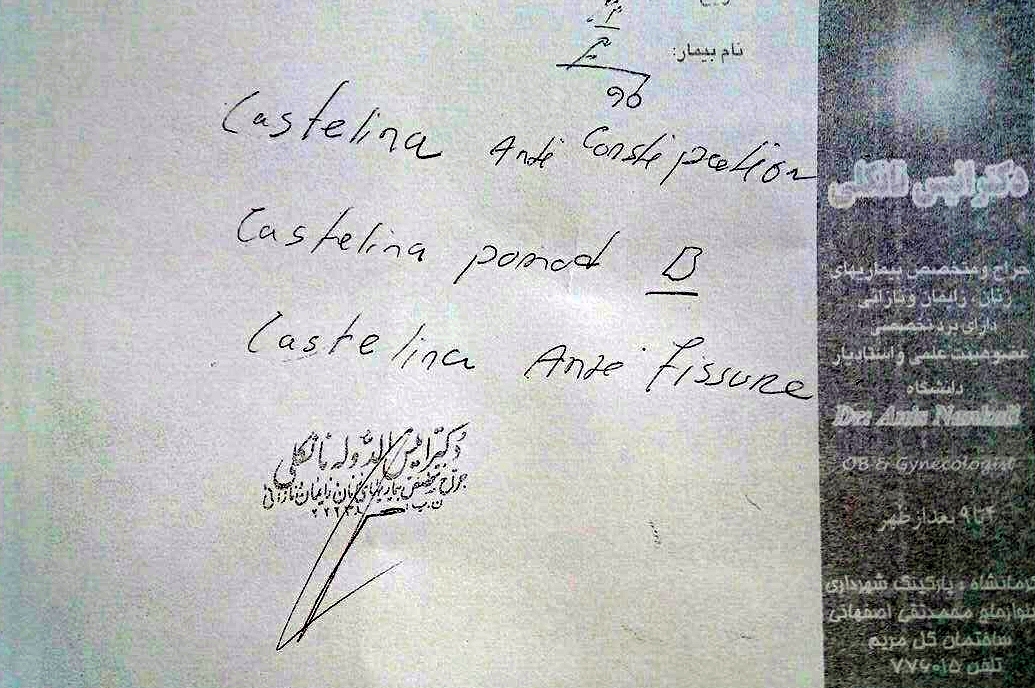 نام بیمار:
Castelina Anti Constipation
Castelina pomad B
Castelina Anti Fissure
دکتر انیس الدوله نانکلی
جراح و متخصص بیماریهای زنان زایمان و نازائی
جراح و متخصص بیماریهای
زنان، زایمان و نازائی
دارای برد تخصصی
عضو هیئت علمی و استادیار
دانشگاه
OB & Gynecologist
۴ تا ۹ بعدازظهر
پارکینگ شهرداری
محمدتقی اصفهانی
ساختمان گل مریم
تلفن ۷۷۶۰۱۵